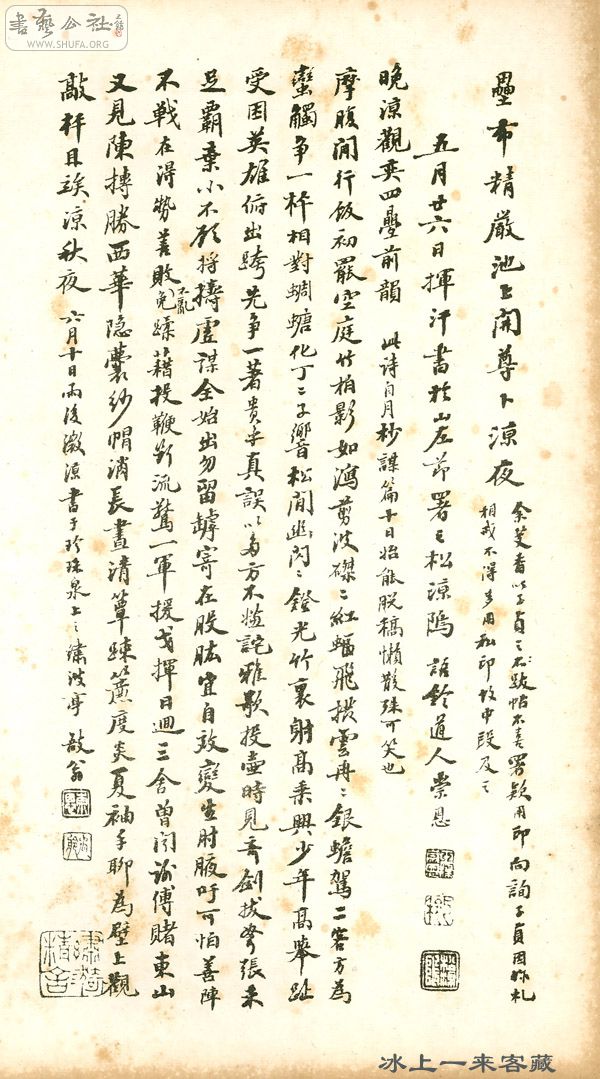 書藝公社
WWW.SHUFA.ORG
壘布精嚴池上開尊卜涼夜
以子貞之不跋帖不喜署款用印向詢子貞因
相戒不得多用私印故中段及之
五月廿六日揮汗書於山左節署之松涼隖 語鈴道人崇恩
晚涼觀奕四疊前韻 此詩自月杪謀篇十日始能脫稿懶散殊可笑也
摩腹閒行飯初罷空庭竹柏影如瀉剪波磔〻紅蝠飛拱雲冉〻銀蟾駕二客方為
蠻觸爭一枰相對蜩螗化丁〻子響松間幽閃〻鐙光竹裏射高乘興少年高舉趾
受困英雄俯出跨先爭一著貴乎真誤以多方不嫌詫雅歌投壺時見奇劍拔弩張未
足霸棄小不顧將擣虛謀全始出勿留罅寄在股肱宜自效變生肘腋吁可怕善陣
不戰在得勢善敗不亂免蹂藉投鞭斷流驚一軍援戈揮日迴三舍曾聞謝傅賭東山
又見陳摶勝西華隱囊紗帽消長晝清簟疎簾度炎夏袖手聊為壁上觀
敲枰且俟涼秋夜 六月十日雨後微涼書于珍珠泉上之繡波亭 敔翁
冰上一来客藏